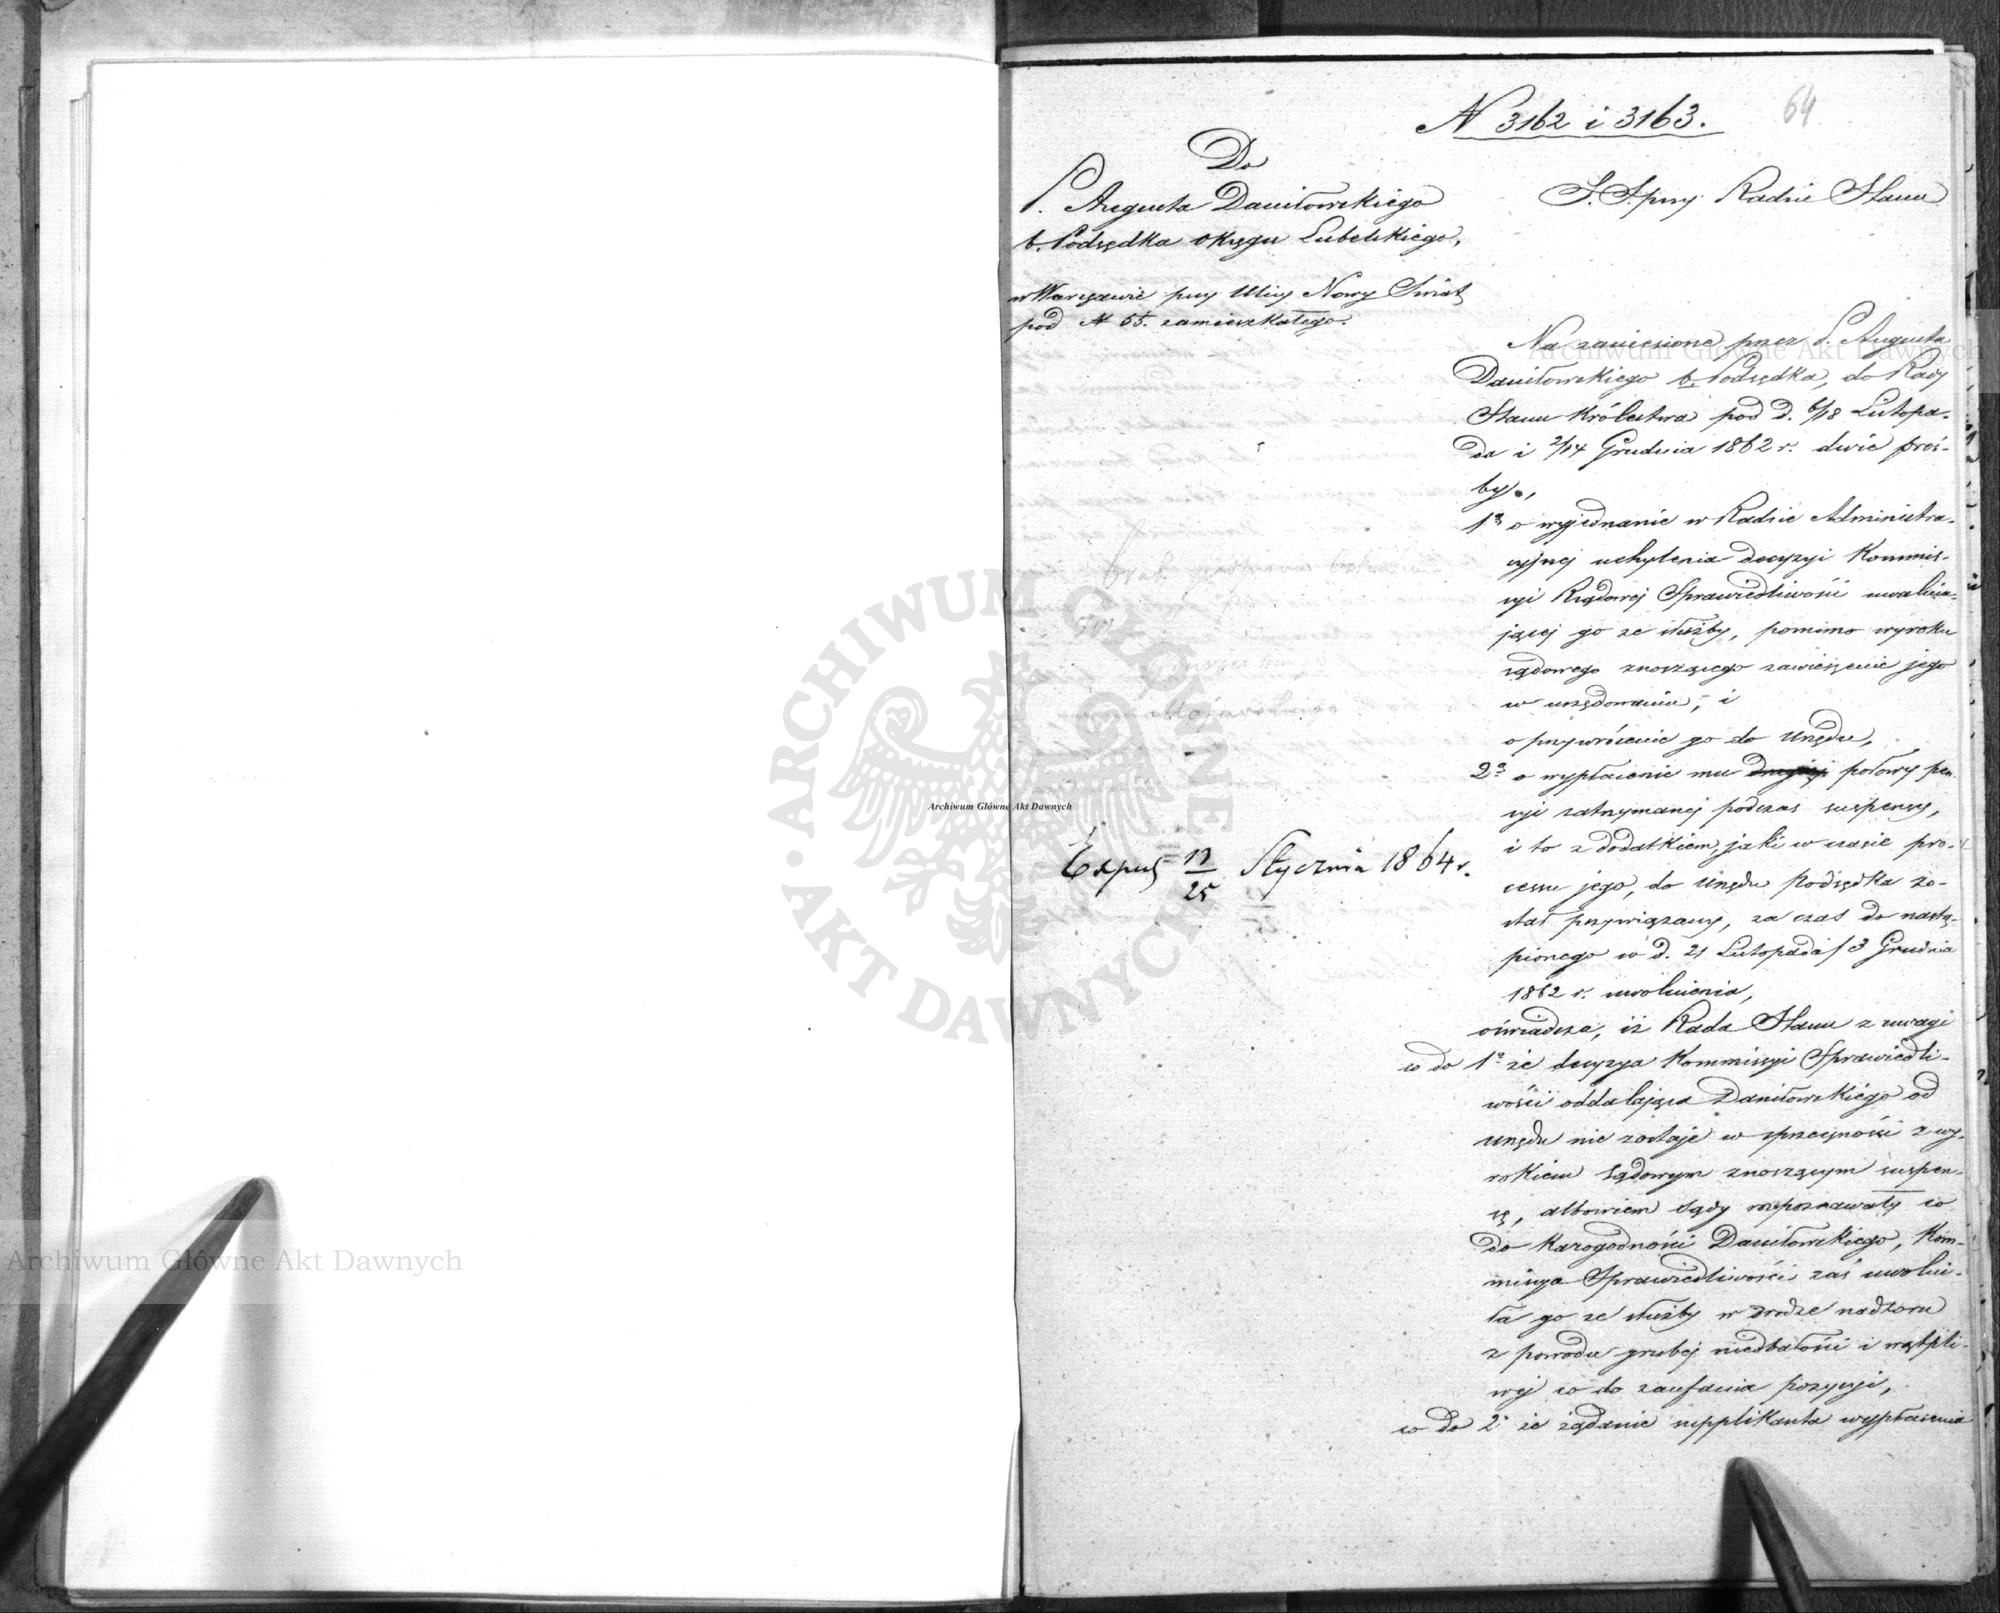 N 3162 i 3163.
64
Do
P. Augusta Daniłowskiego
b. Podsędka Okręgu Lubelskiego,
w Warszawie przy Ulicy Nowy Świat
pod N 55. zamieszkałego.
S. S. przy Radzie Stanu
Na zaniesione przez P. Augusta
Daniłowskiego b. Podsędka, do Rady
Stanu Królestwa pod d. 6/18 Listopa-
da i 2/14 Grudnia 1862 r. dwie proś-
by,
1º o wyjednanie w Radzie Administra-
cyjnej uchylenia decyzyi Kommis-
syi Rządowej Sprawiedliwości uwalnia-
jącej go ze służby, pomimo wyroku
sądowego znoszącego zawieszenie jego
w urzędowaniu, i
o przywrócenie go do Urzędu,
2º o wypłacenie mu drugiej połowy pen-
syi zatrzymanej podczas suspensy,
i to z dodatkiem, jaki w czasie pro-
cessu jego, do Urzędu Podsędka zo-
stał przywiązany, za czas do nastą-
pionego w d. 21 Listopada/3 Grudnia
1862 r. uwolnienia,
oświadcza, iż Rada Stanu z uwagi
co do 1º że decyzya Kommissyi Sprawiedli-
wości oddalająca Daniłowskiego od
Urzędu nie zostaje w sprzeczności z wy-
rokiem Sądowym znoszącym suspen-
sę, albowiem Sądy rozpoznawały co
do karogodności Daniłowskiego, Kom-
missya Sprawiedliwości zaś uwolni-
ła go ze służby w drodze nadzoru
z powodu grubej niedbałości i wątpli-
wej co do zaufania pozycyi,
co do 2º że żądanie supplikanta wypłacenia
Exped. 13/25 Stycznia 1864 r.
Archiwum Główne Akt Dawnych
Archiwum Główne Akt Dawnych
Archiwum Główne Akt Dawnych
ARCHIWUM GŁÓWNE • AKT DAWNYCH